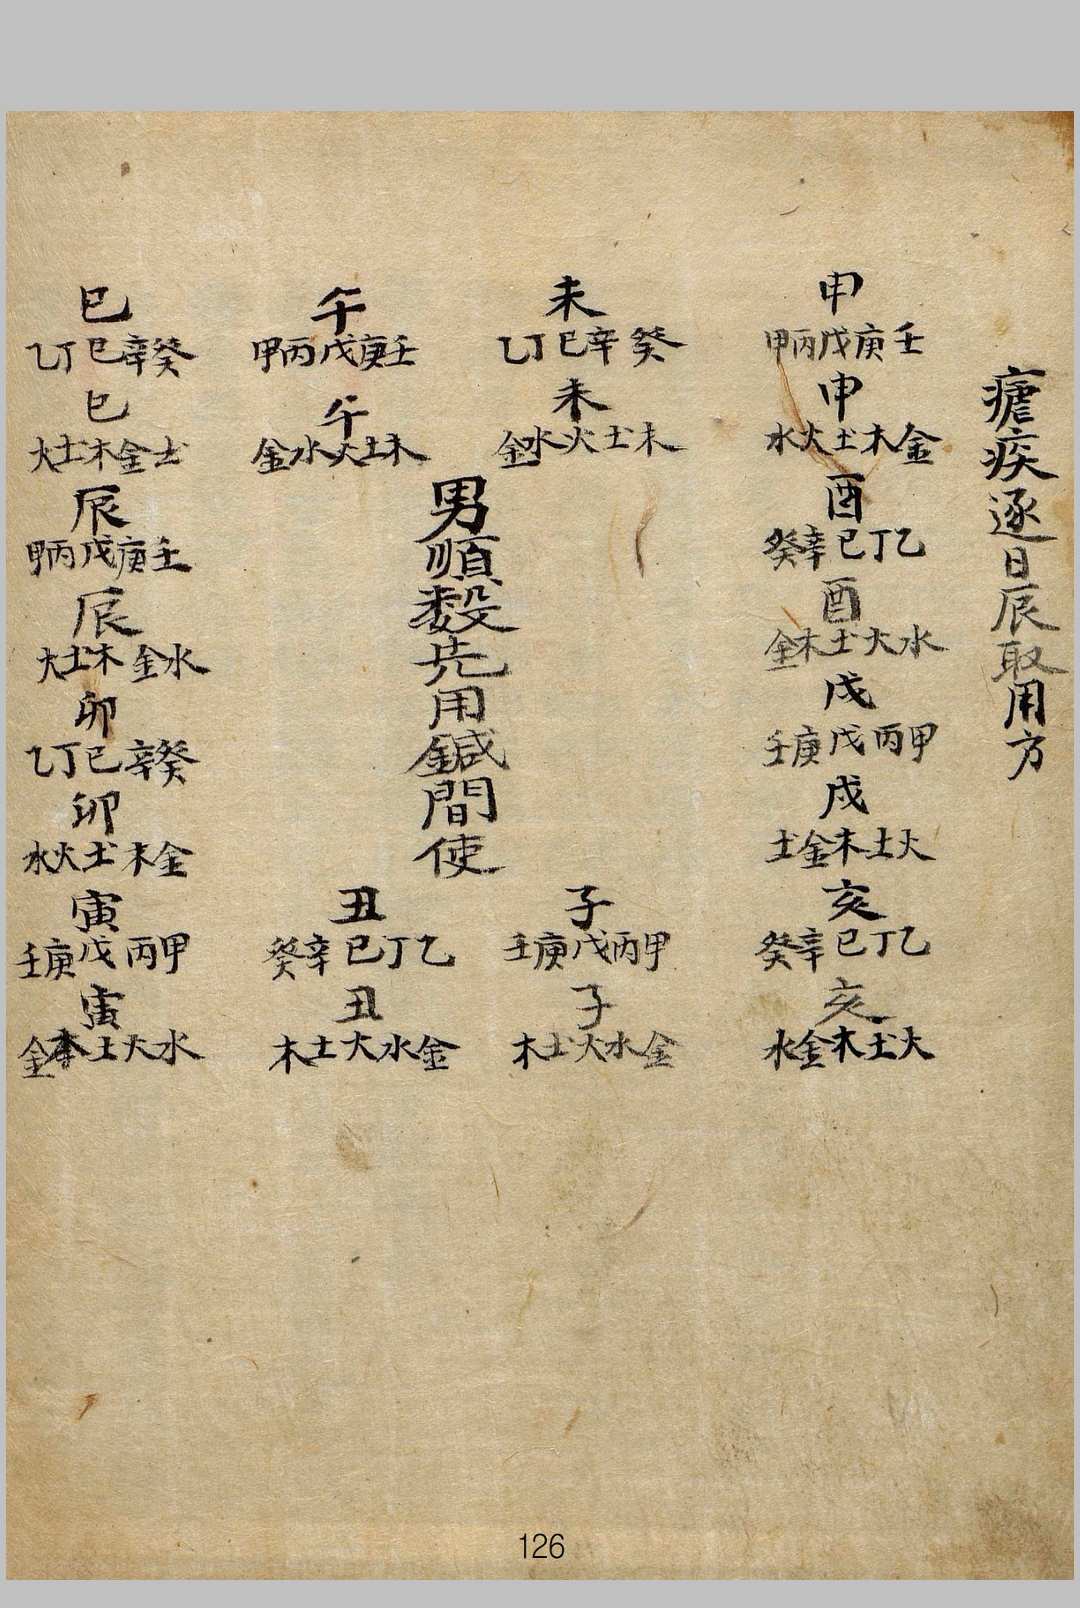 瘧疾逐日辰取用方
申
甲丙戊庚壬
申
水火土木金
酉
癸辛巳丁乙
酉
金木土火水
戌
壬庚戊丙甲
戌
土金木土火
亥
癸辛巳丁乙
亥
水金木土火
未
乙丁巳辛癸
未
金水火土木
子
壬庚戊丙甲
子
木土火水金
男順數先用鍼間使
午
甲丙戊庚壬
午
金水火土木
丑
癸辛巳丁乙
丑
木土火水金
巳
乙丁巳辛癸
巳
火土木金土
辰
甲丙戊庚壬
辰
火土木金水
卯
乙丁巳辛癸
卯
水火土木金
寅
壬庚戊丙甲
寅
金木土火水
126